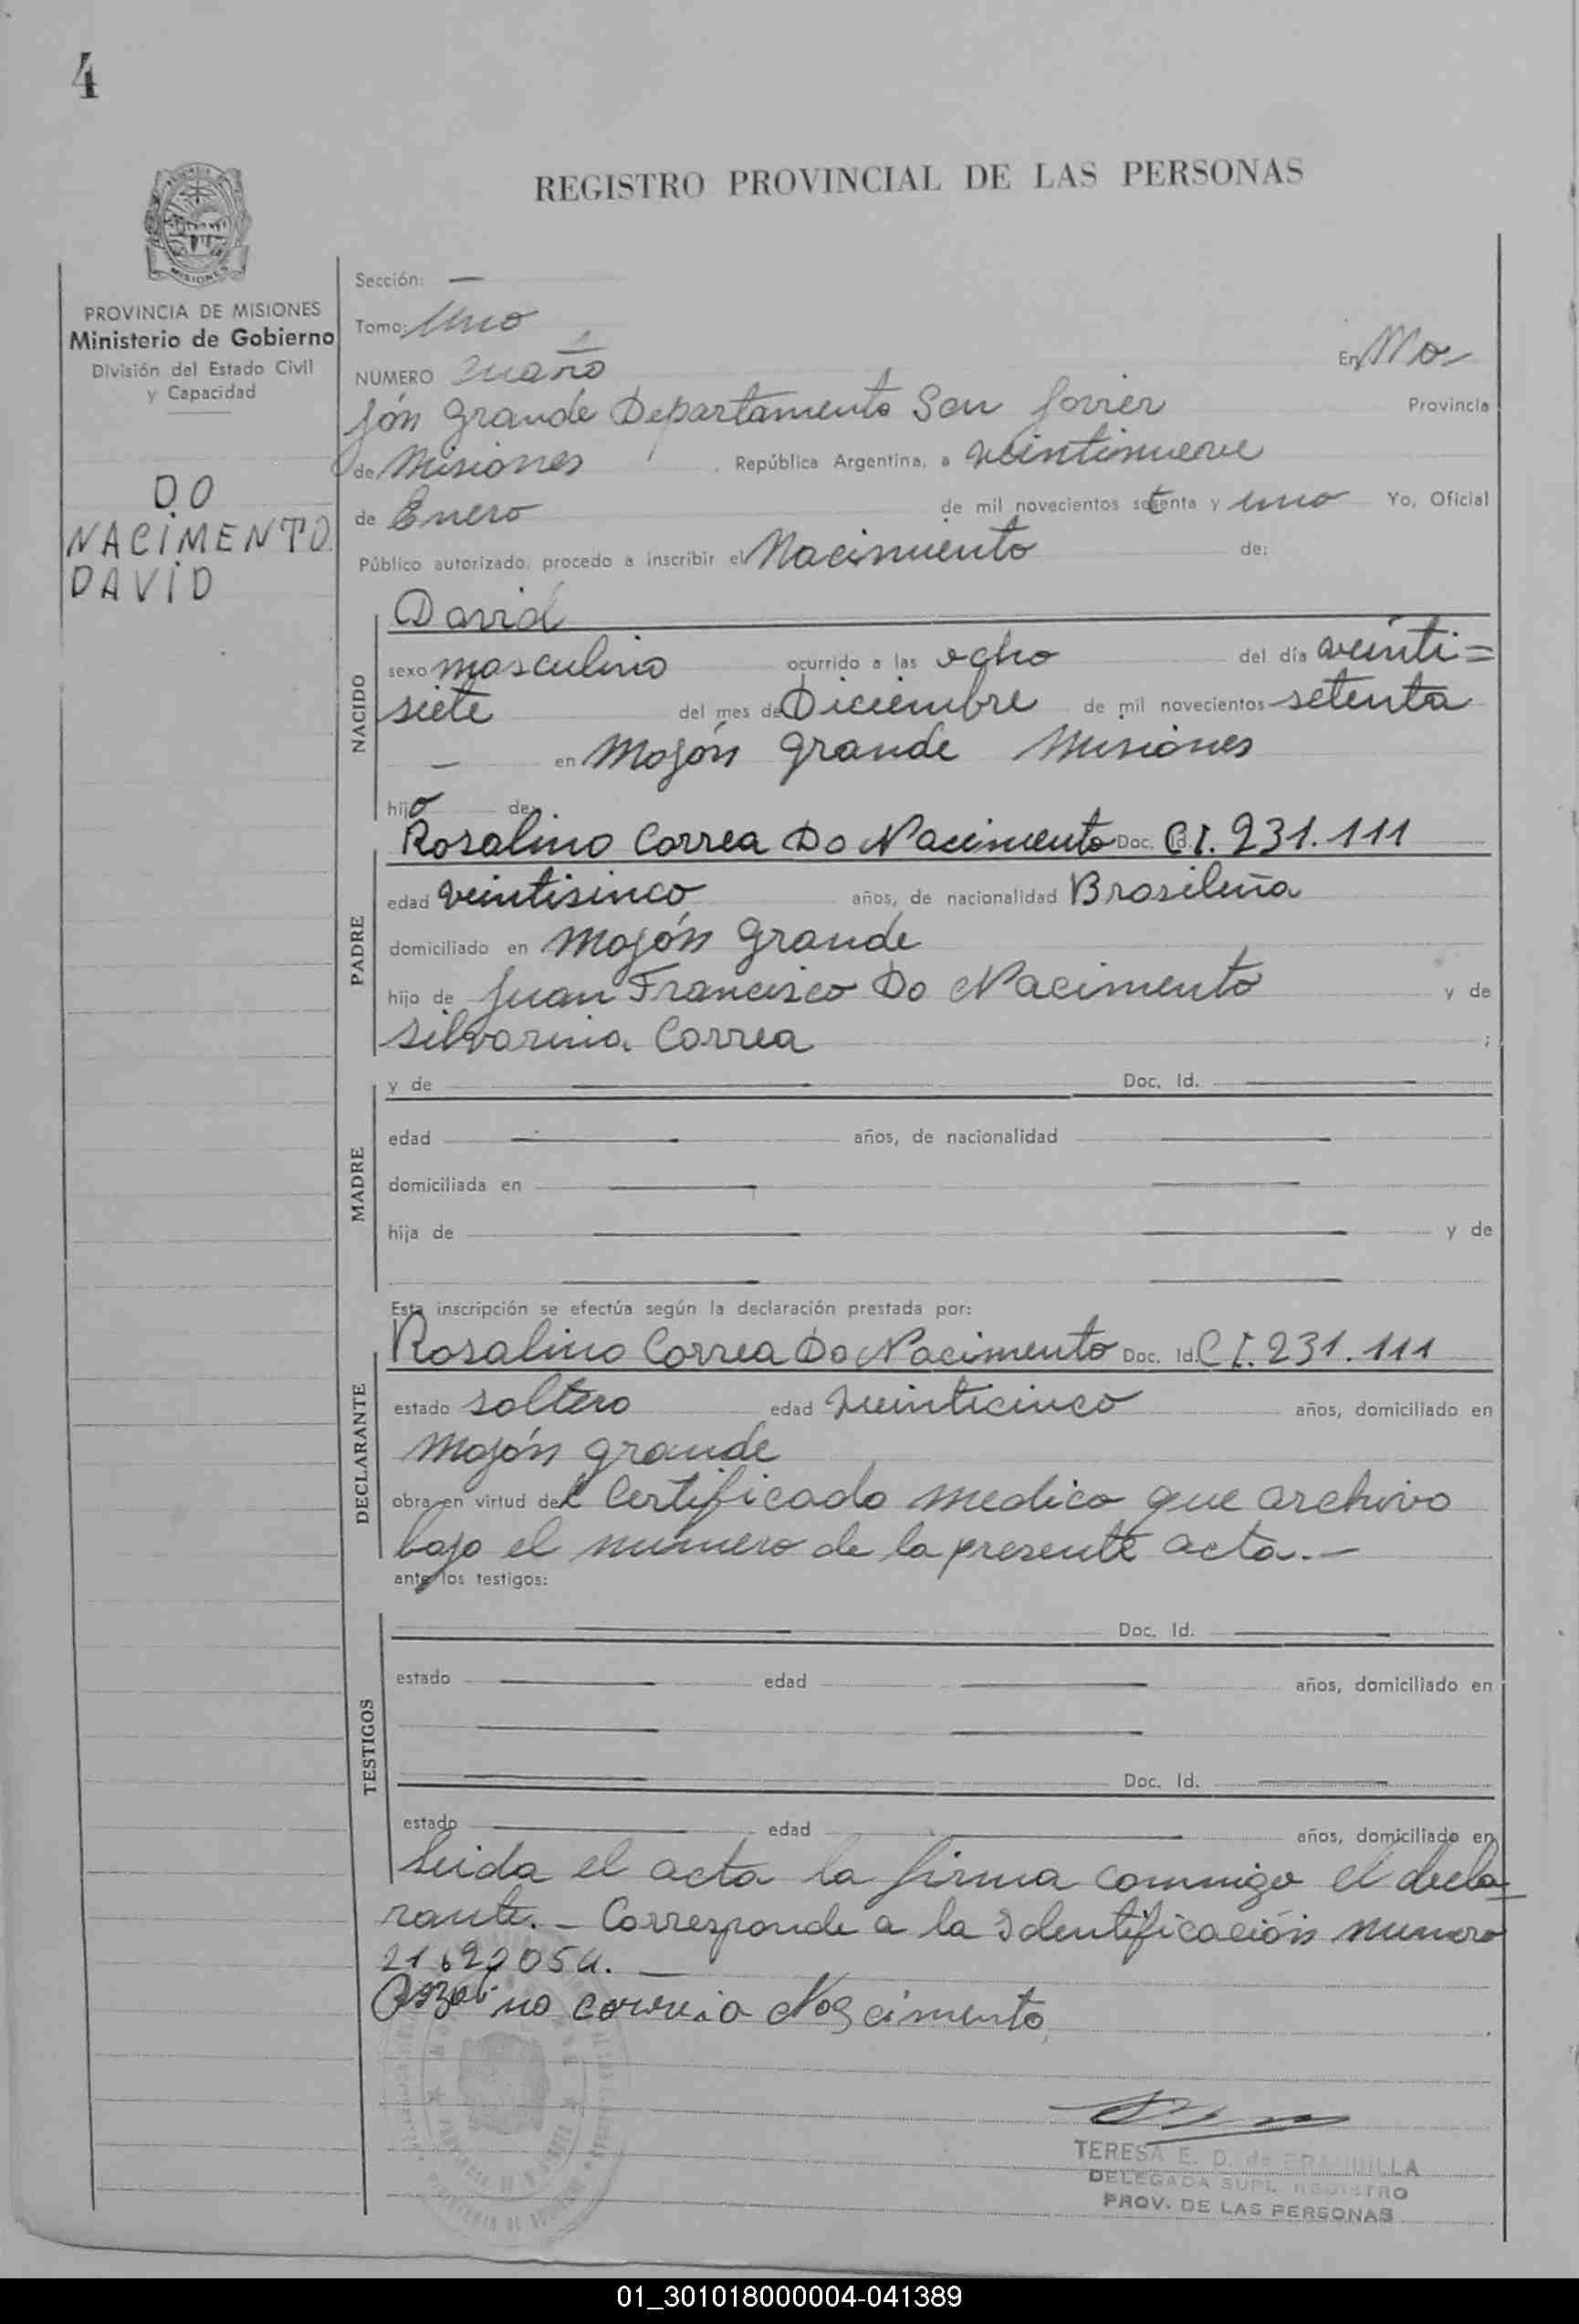 4
REGISTRO PROVINCIAL DE LAS PERSONAS
MISIONES
PROVINCIA DE MISIONES
Ministerio de Gobierno
División del Estado Civil
y Capacidad
DO
NACIMENTO
DAVID
Sección: —
Tomo: Uno
NUMERO En Mo-
jón Grande Departamento San Javier Provincia
de Misiones , República Argentina, a veintinueve
de Enero de mil novecientos setenta y uno Yo, Oficial
Público autorizado, procedo a inscribir el Nacimiento de:
NACIDO
David
sexo masculino ocurrido a las ocho del día veinti=
siete del mes de Diciembre de mil novecientos setenta
— en Mojón Grande Misiones
hijo de:
PADRE
Rosalino Correa Do Nacimento Doc. Id. C I. 231.111
edad veintisinco años, de nacionalidad Brasileña
domiciliado en Mojón Grande
hijo de Juan Francisco Do Nacimento y de
Silvarina Correa ;
MADRE
y de — Doc. Id. —
edad — años, de nacionalidad —
domiciliada en — —
hija de — — y de
— —
Esta inscripción se efectúa según la declaración prestada por:
DECLARANTE
Rosalino Correa Do Nacimento Doc. Id. C I. 231.111
estado soltero edad veinticinco años, domiciliado en
Mojón Grande
obra en virtud del Certificado medico que archivo
bajo el número de la presente acta.—
ante los testigos:
TESTIGOS
— Doc. Id. —
estado — edad — años, domiciliado en
— —
— Doc. Id. —
estado — edad — años, domiciliado en
Leida el acta la firma conmigo el decla-
rante.— Corresponde a la Identificación numero
no correia Nascimento
TERESA E. D. de
DELEGADA SUPL. REGISTRO
PROV. DE LAS PERSONAS
01_301018000004-041389